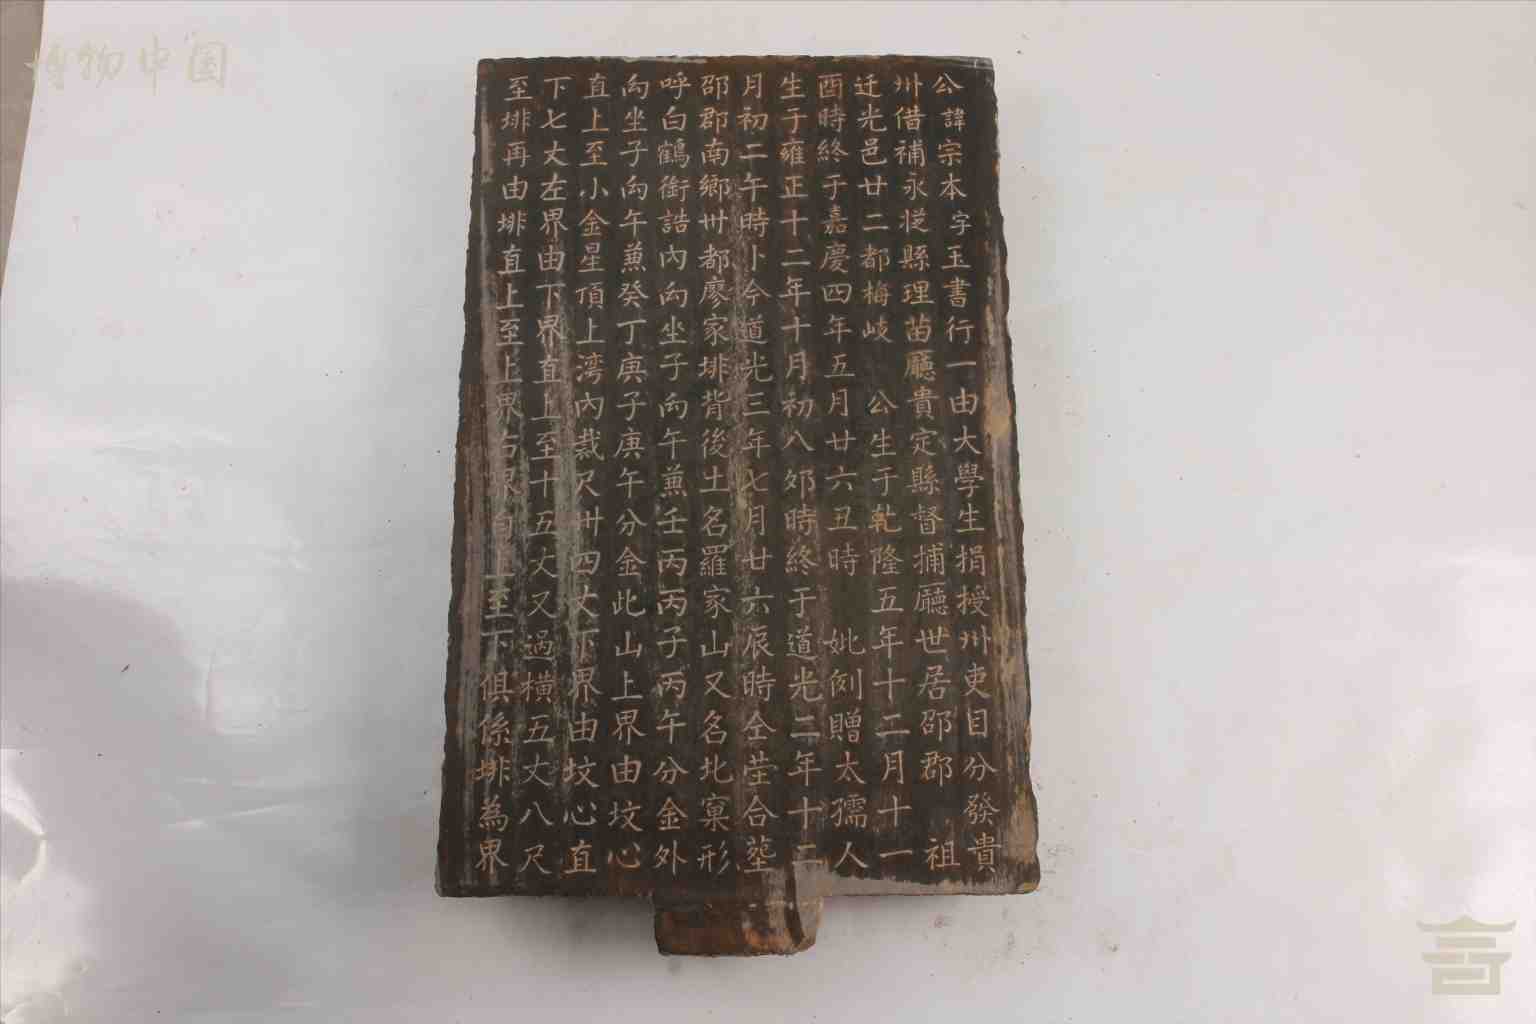 博物中国
公諱宗本字玉書行一由大學生捐授州吏目分發貴
州借補永從縣理苗廳貴定縣督捕廳世居邵郡 祖
迁光邑廿二都梅岐 公生于乾隆五年十二月十一
酉時終于嘉慶四年五月廿六丑時 妣例贈太孺人
生于雍正十二年十月初八夘時終于道光二年十二
月初二午時卜今道光三年七月廿六辰時仝塋合墓
邵郡南鄉卅都廖家排背後土名羅家山又名北窠形
呼白鶴銜誥內向坐子向午兼壬丙丙子丙午分金外
向坐子向午兼癸丁庚子庚午分金此山上界由坟心
直上至小金星頂上湾內裁尺卅四丈下界由坟心直
下七丈左界由下界直上至十五丈又過橫五丈八尺
至排再由排直上至上界右界自上至下俱係排為界